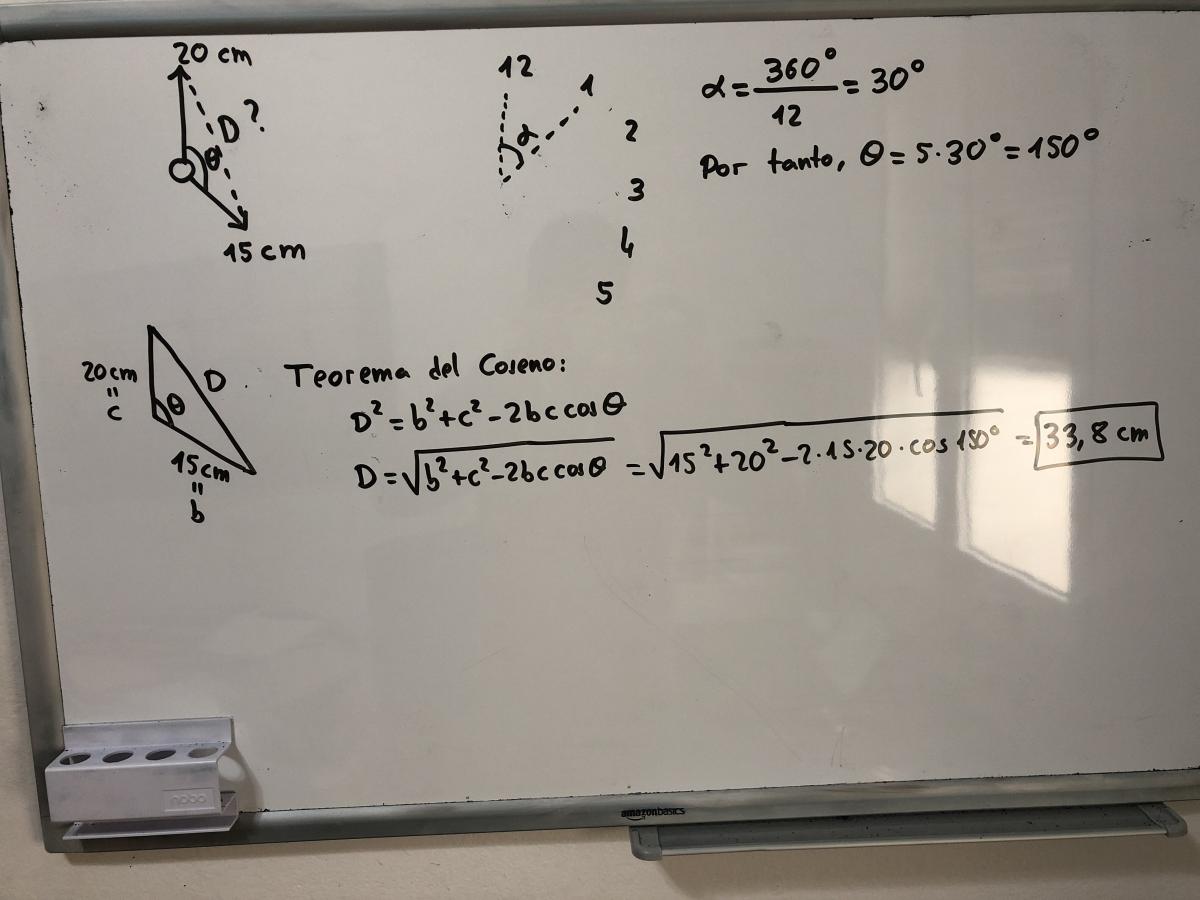 20 cm
D ?
θ
15 cm
12
1
α
2
3
4
5
α = 360° / 12 = 30°
Por tanto, θ = 5·30° = 150°
20 cm
"
c
D
θ
15 cm
"
b
Teorema del Coseno:
D² = b² + c² - 2bc cos θ
D = √(b² + c² - 2bc cos θ) = √(15² + 20² - 2·15·20·cos 150°) = 33,8 cm
nobo
amazonbasics